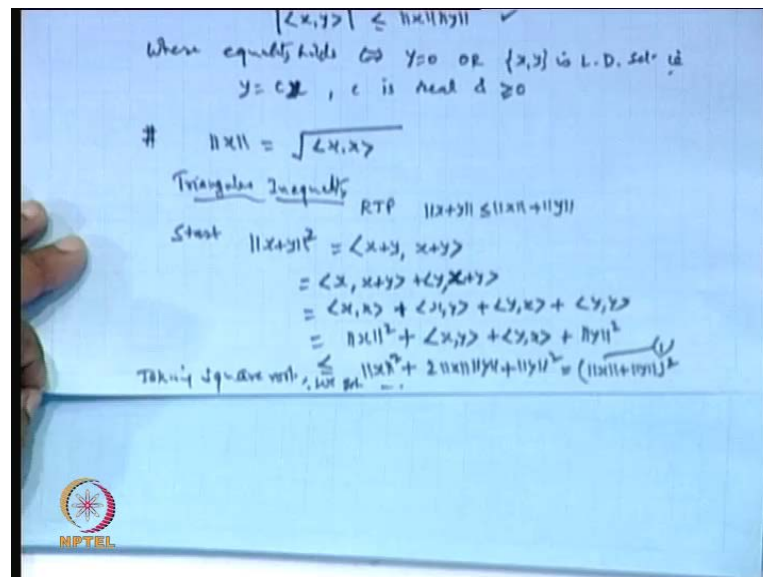 |<x,y>| ≤ ||x|| ||y|| ✓
Where equality holds ⇔ y=0 OR {x,y} is L.D. set ie
y = cx, c is real & ≥0
# ||x|| = √<x,x>
Triangular Inequality
RTP ||x+y|| ≤ ||x|| + ||y||
Start ||x+y||² = <x+y, x+y>
= <x, x+y> + <y, x+y>
= <x,x> + <x,y> + <y,x> + <y,y>
= ||x||² + <x,y> + <y,x> + ||y||²
≤ ||x||² + 2||x|| ||y|| + ||y||² = (||x||+||y||)²
Taking square root, we get
NPTEL